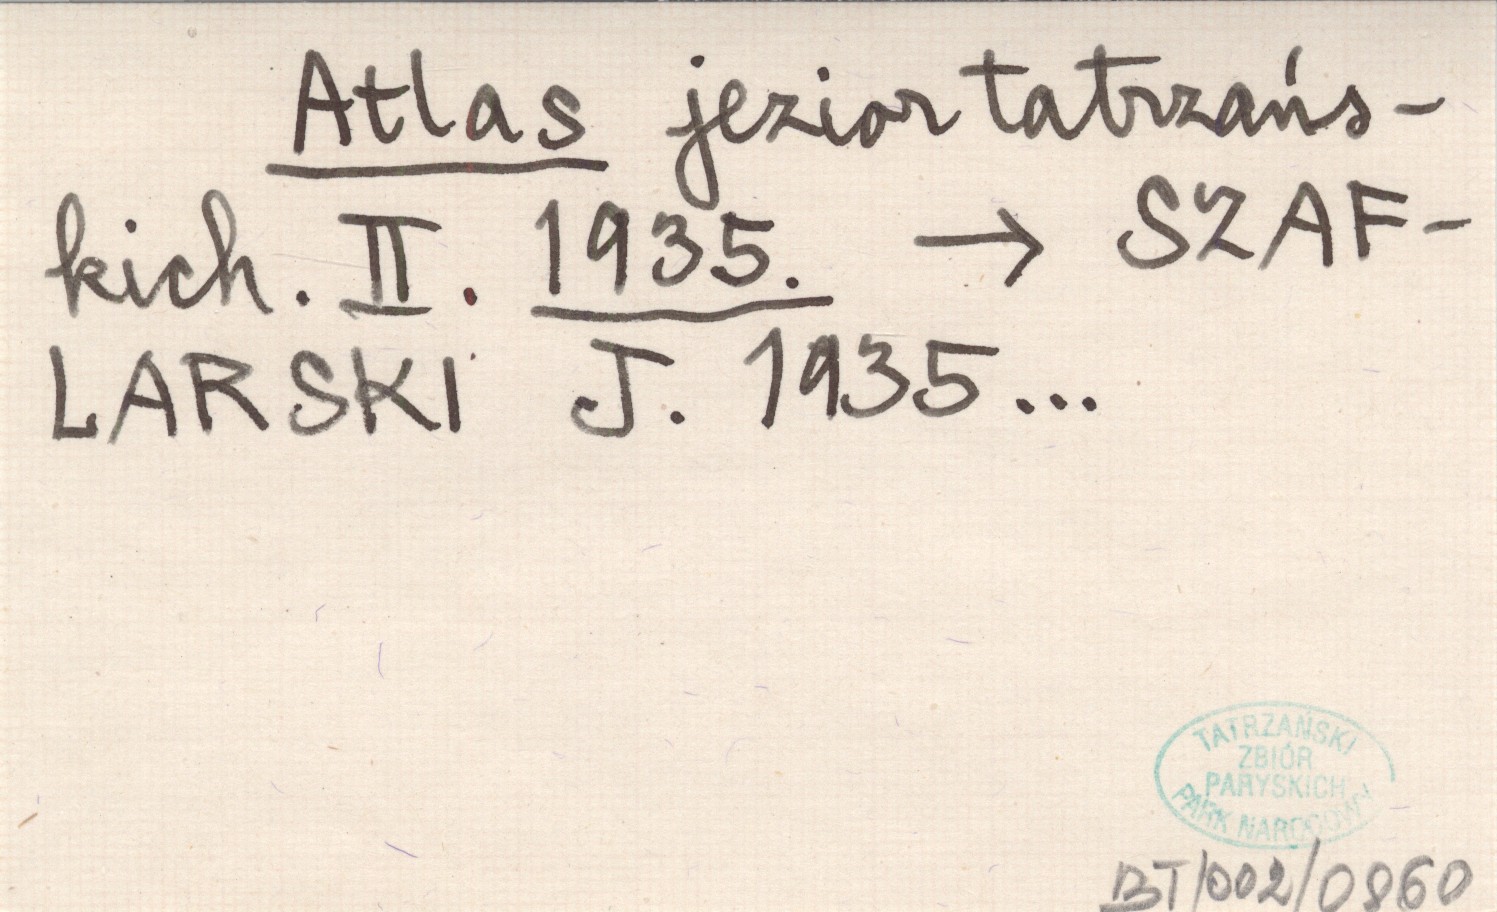 Atlas jezior tatrzańs-
kich. II. 1935. → SZAF-
LARSKI J. 1935...
TATRZAŃSKI
ZBIÓR
PARYSKICH
PARK NARODOWY
BT/002/0860